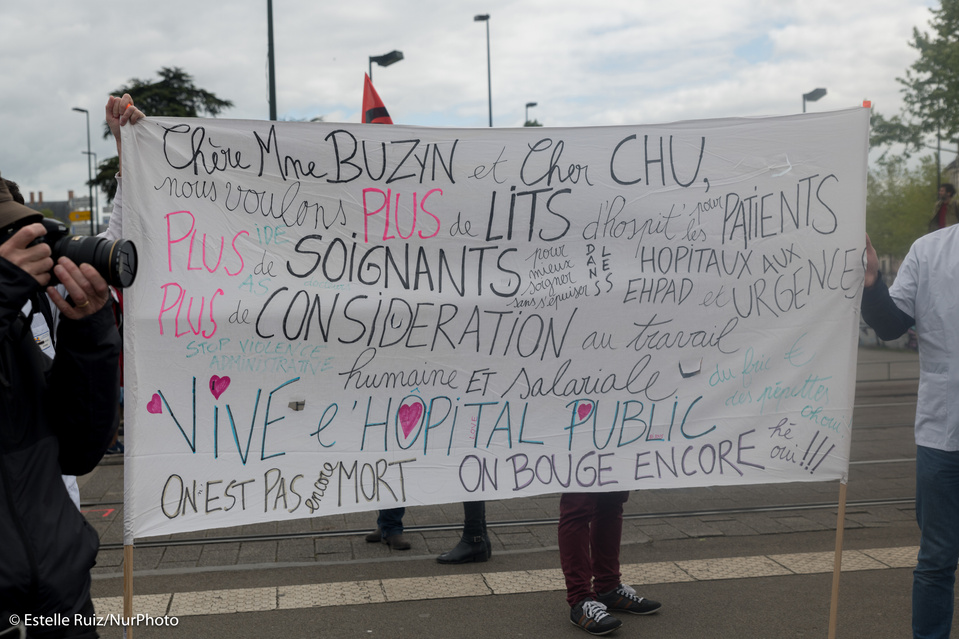 Chère Mme BUZYN et Cher CHU,
nous voulons PLUS de LITS d'hospit' pour les PATIENTS
PLUS IDE AS de SOIGNANTS pour mieux soigner sans s'épuiser DANS LES HOPITAUX AUX
EHPAD et URGENCES
PLUS de CONSIDERATION au travail
STOP VIOLENCE
ADMINISTRATIVE
humaine ET salariale
du fric €
des pépettes
VIVE l'HÔPITAL PUBLIC
hé oui!!!
ON EST PAS encore MORT ON BOUGE ENCORE
© Estelle Ruiz/NurPhoto